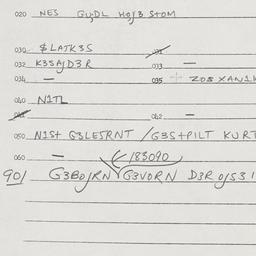 020 NES GUDL HOJ3 STOM
030 $LATK3S 031
032 K3SAJD3R 033 —
034 — 035 ZOBXAN1K
040 N1TL
041 042 —
050 N1St G3LESRNT / G3S+PILT KURT
060 — (183090)
901 G3BOJRN G3VORN D3R OJS31